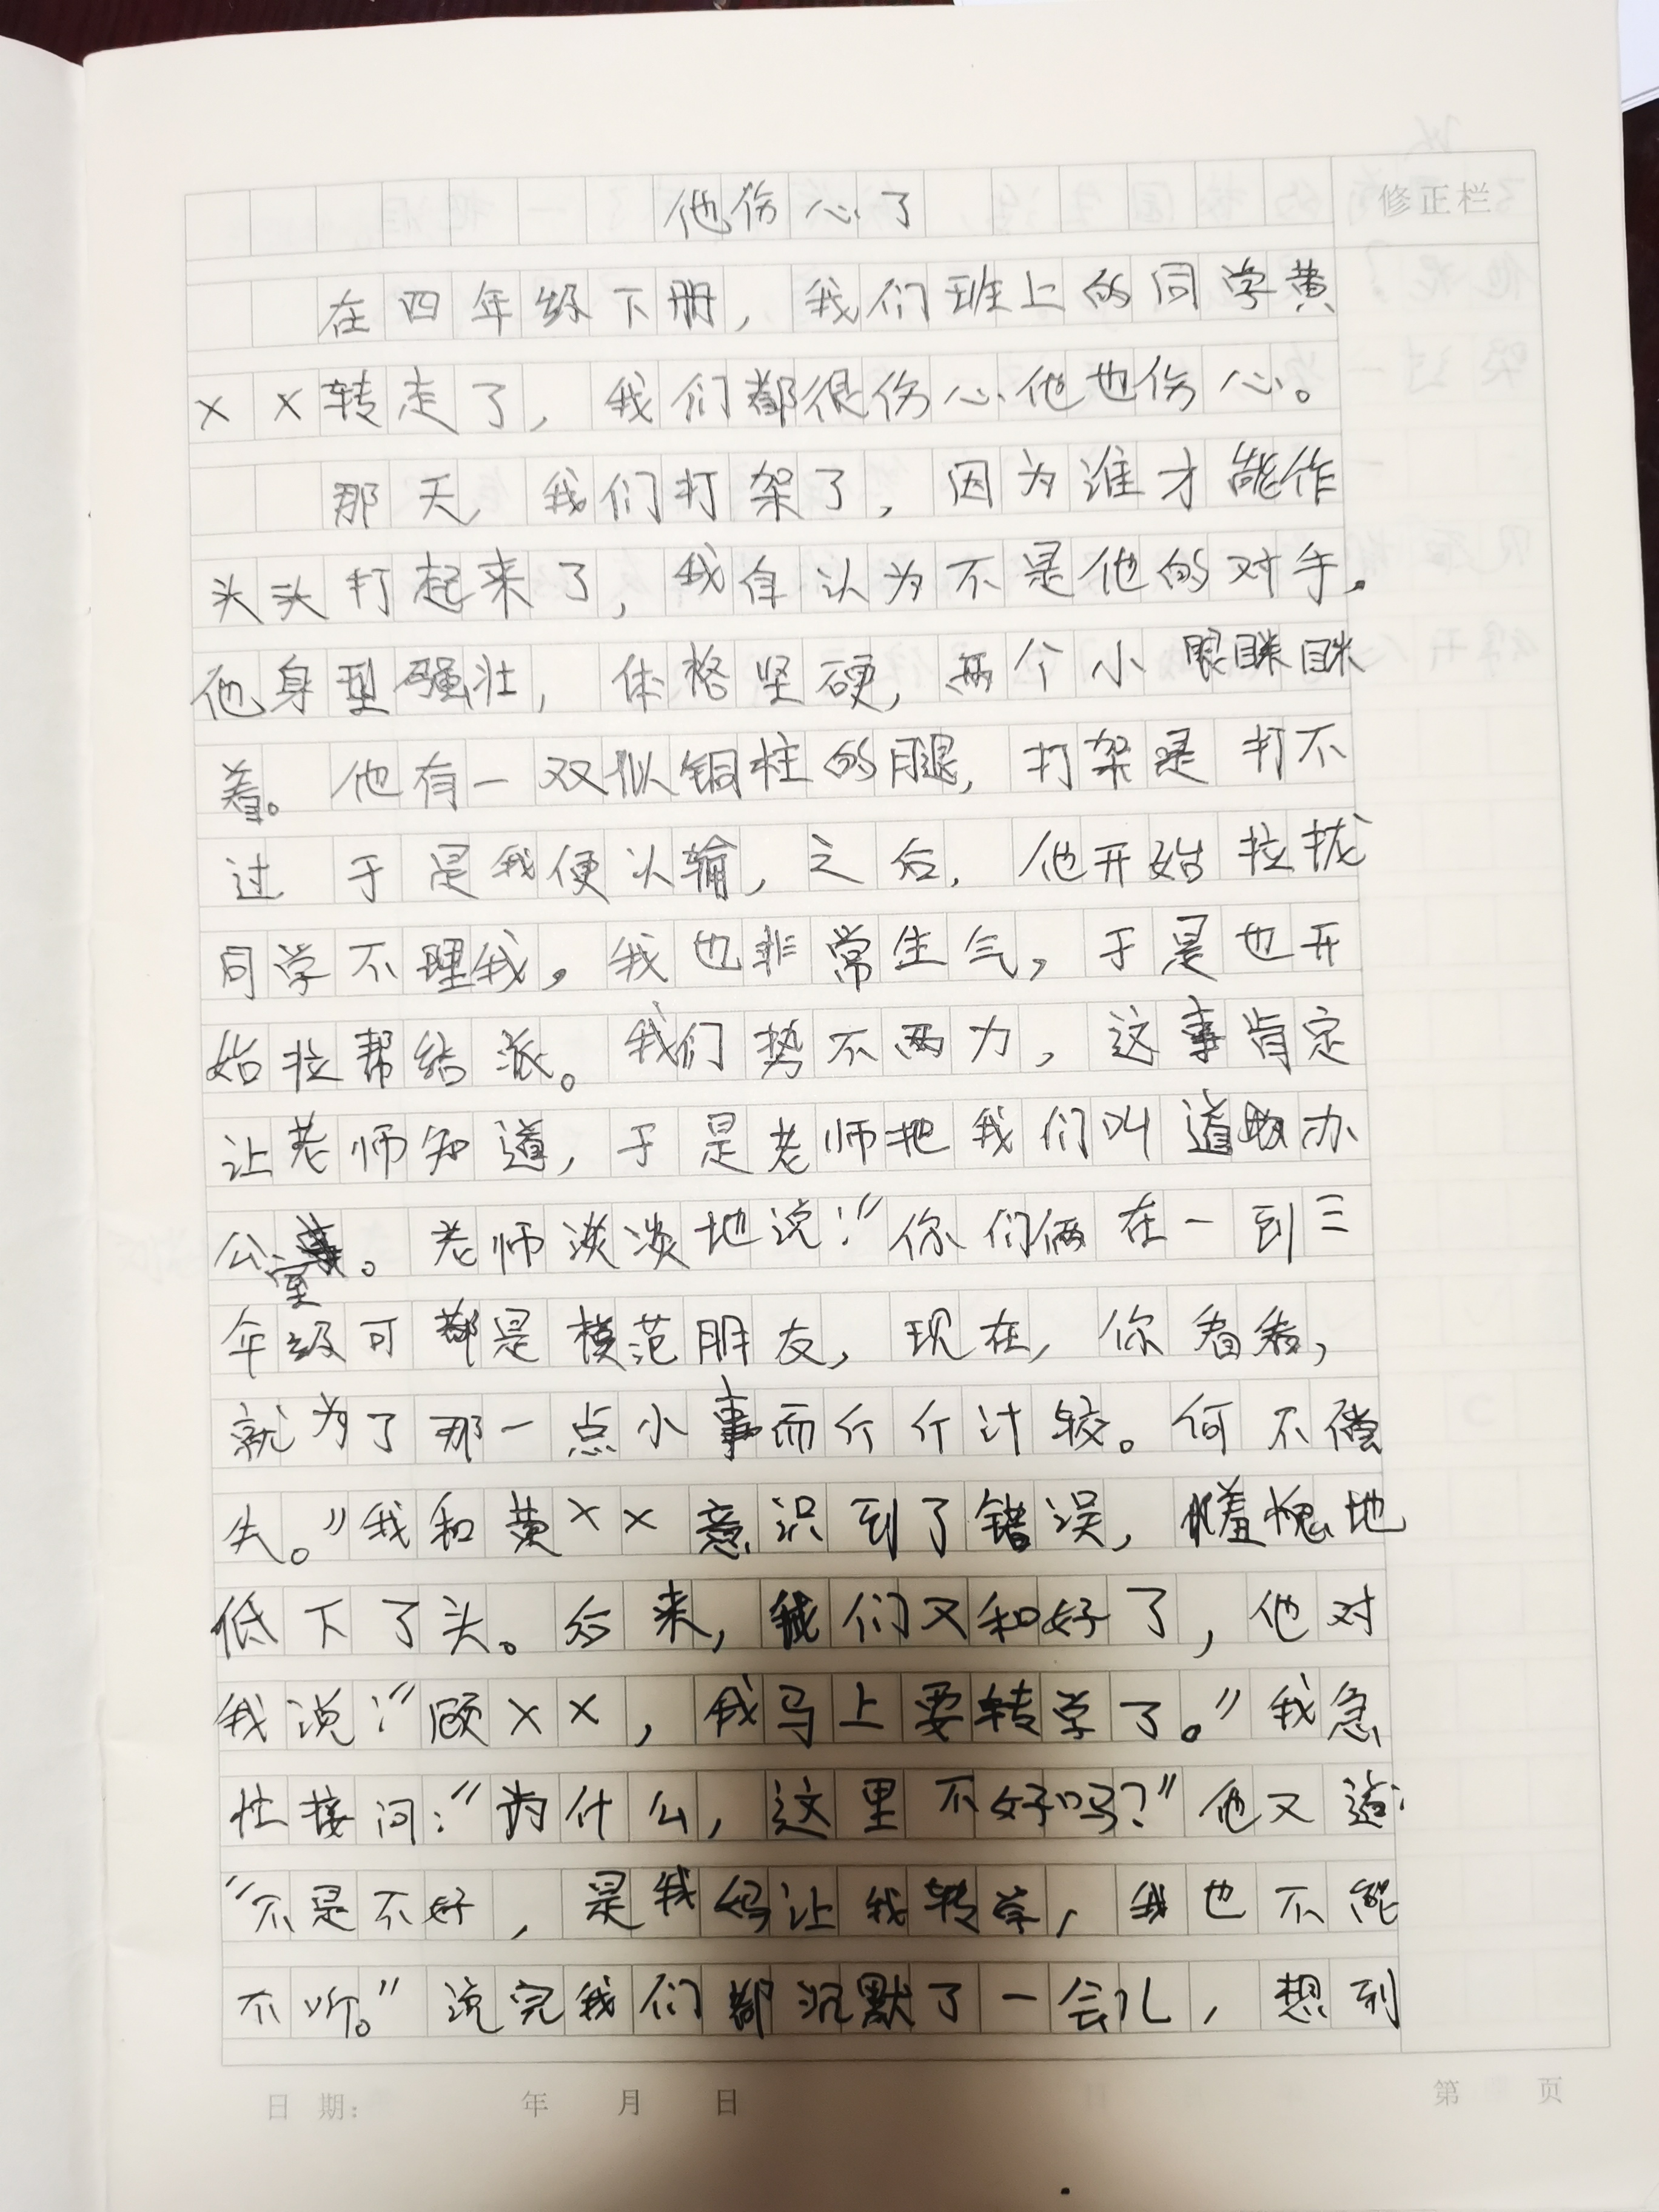 他伤心了
修正栏
在四年级下册，我们班上的同学黄
××转走了，我们都很伤心他也伤心。
那天，我们打架了，因为谁才能作
头头打起来了，我自认为不是他的对手，
他身型强壮，体格坚硬，两个小眼眯眯
着。他有一双似铜柱的腿，打架是打不
过 于是我便认输，之后，他开始拉拢
同学不理我，我也非常生气，于是也开
始拉帮结派。我们势不两力，这事肯定
让老师知道，于是老师把我们叫道办
公室。老师淡淡地说：“你们俩在一到三
年级可都是模范朋友，现在，你看看，
就为了那一点小事而斤斤计较。何不偿
失。”我和黄××意识到了错误，羞愧地
低下了头。后来，我们又和好了，他对
我说：“顾××，我马上要转学了。”我急
忙接问：“为什么，这里不好吗？”他又道：
“不是不好，是我妈让我转学，我也不能
不听。”说完我们都沉默了一会儿，想到
日期： 年 月 日
第 页